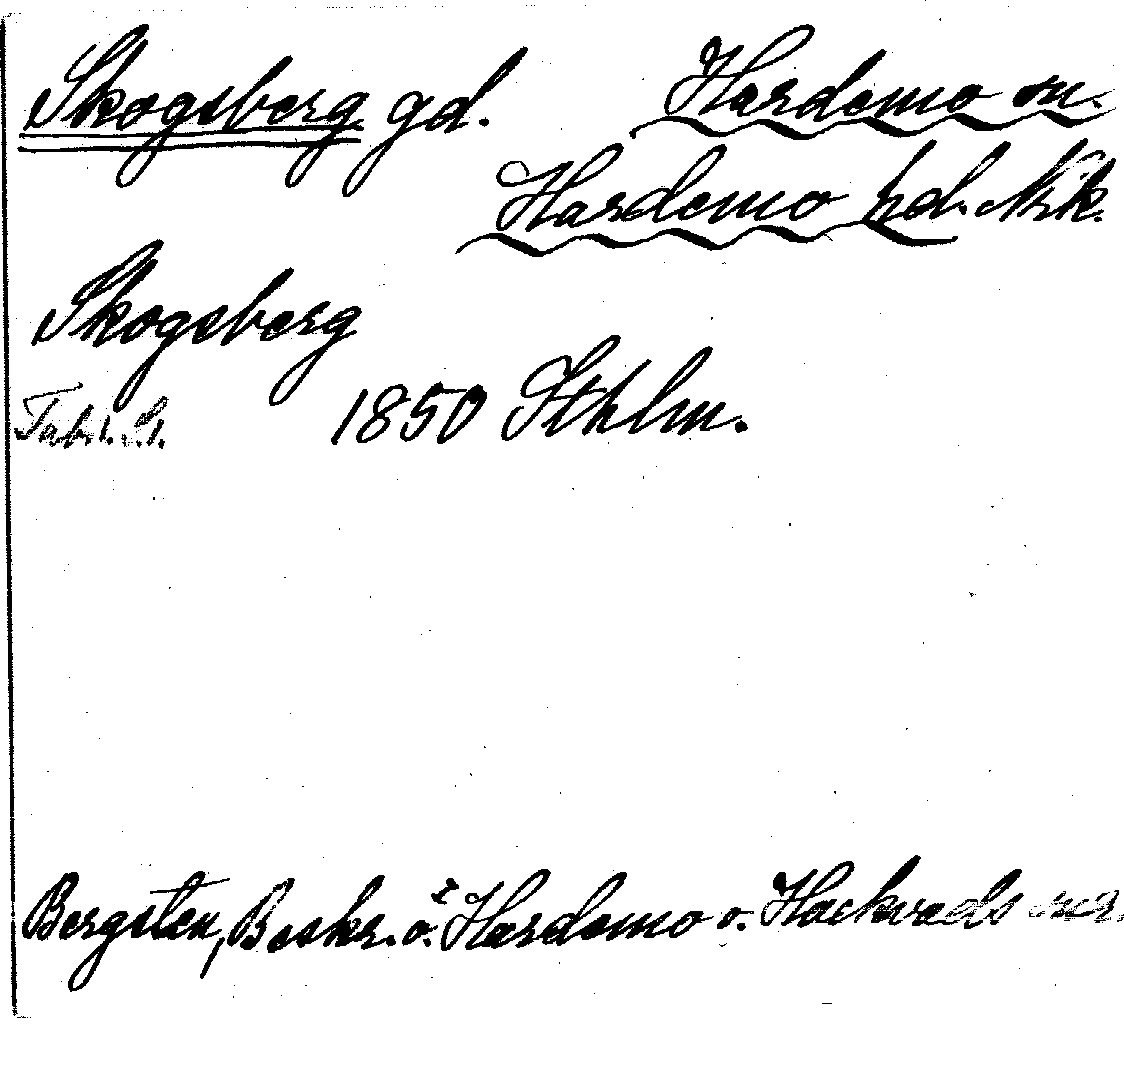 Skogsberg gd. Hardemo sn.
Hardemo hd. Närk.
Skogsberg
1850 Sthlm.
Bergsten, Beskr. ö. Hardemo o. Hackvads snr.